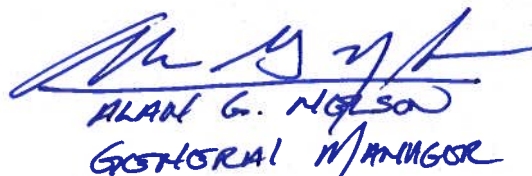 ALAN G. NELSON
GENERAL MANAGER